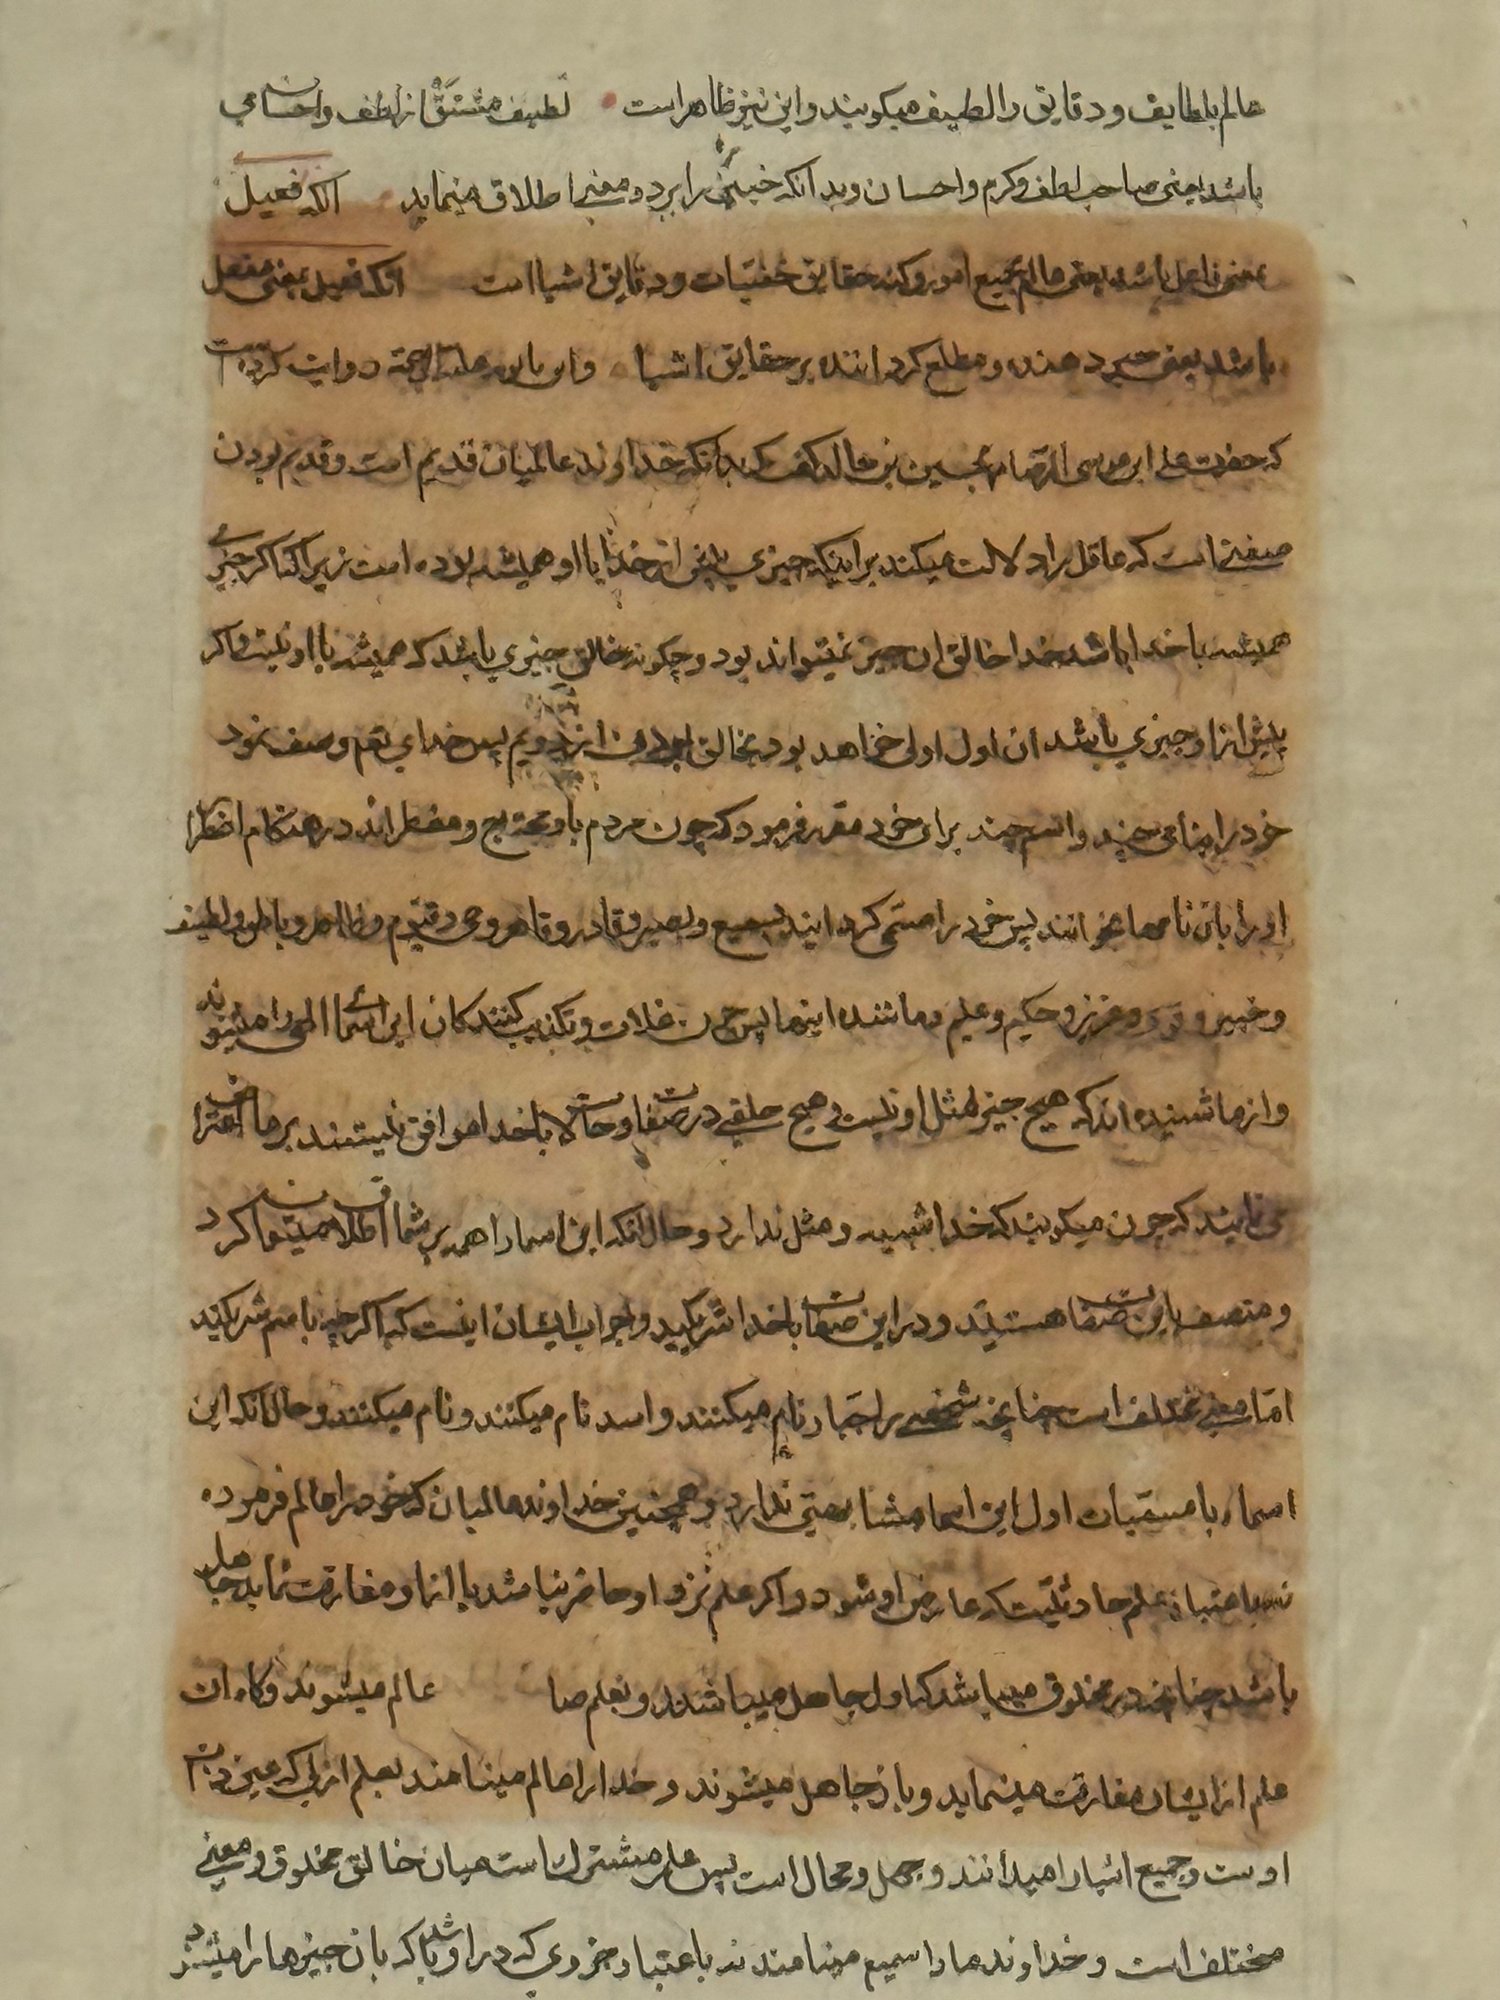 عالم بلطایف و دقایق را لطیف میکویند و این نیز ظاهر است لطیف مشتق از لطف و احسان می
باشد یعنی صاحب لطف و کرم و احسان و بدانکه خبیر را بر دو معنی اطلاق مینماید اکه فعیل
بمعنی فاعل باشد یعنی عالم بجمیع امور و کنه حقایق خفیّات و دقایق اشیا است انکه فعیل بمعنی مفعل
باشد یعنی خبر دهنده و مطلع کرداننده بر حقایق اشیا و ابن بابویه علیه الرحمة روایت کرده است
که حضرت علی ابن موسی الرضا بحسین بن خالد کفت که بدانکه خداوند عالمیان قدیم است و قدیم بودن
صفتی است که عاقل را دلالت میکند بر اینکه چیزی پیش از خدا یا با او همیشه بوده است زیرا که اکر چیزی
همیشه با خدا باشد خدا خالق ان چیز نمیتواند بود و چکونه خالق چیزی باشد که همیشه با او نیست و اکر
پیش از او چیزی باشد ان اول اولی خواهد بود بخالق بودن از دویم پس خدای تعم وصف نمود
خود را بنامی چند و اسم چند برای خود مقرر فرمود که چون مردم باو محتاج و مضطراند در هنکام اضطرا
او را باین نامها بخوانند پس خود را مسمّی کردانید بسمیع و بصیر و قادر و قاهر و حی و قیّوم و ظاهر و باطن و لطیف
و خبیر و قوی و عزیز و حکیم و علیم و مانند اینها پس چون غلات و تکذیب کنندکان این اسمای الهی را میشنوند
و از ما شنیده اند که هیچ چیز مثل او نیست و هیچ خلقی در صفات و حالات با خدا موافق نیستند بر ما اعتراض
می نمایند که چون میکویند که خدا شبیه و مثل ندارد و حال انکه این اسما را همه بر شما اطلاق میتوان کرد
و متصف باین صفات هستید و در این صفات با خدا شریکید و جواب ایشان اینست که اکر چه با اسم شریکید
امّا معنی مختلف است چنانچه شخصی را حمار نام میکنند و اسد نام میکنند و نام میکنند و حال انکه این
اسماء با مسمّیات اول این اسما مشابهتی ندارد و همچنین خداوند عالمیان که خود را عالم فرموده
نه باعتبار علم حادثیست که عارض او شود و اکر علم نزد او حاضر نباشد یا از او مفارقت نماید جاهل
باشد چنانچه در مخلوق میباشد که اول جاهل میباشند و بعلم صا عالم میشوند و کاه ان
علم از ایشان مفارقت مینماید و باز جاهل میشوند و خدا را عالم مینامند بعلم ازلی که عین ذات
اوست و جمیع اشیا را میدانند و جهل و محال است پس علم مشترک است میان خالق و مخلوق و معنی
مختلف است و خداوند ما را سمیع مینامند نه باعتبار جزوی که در او باشد که بان چیزها را میشنود